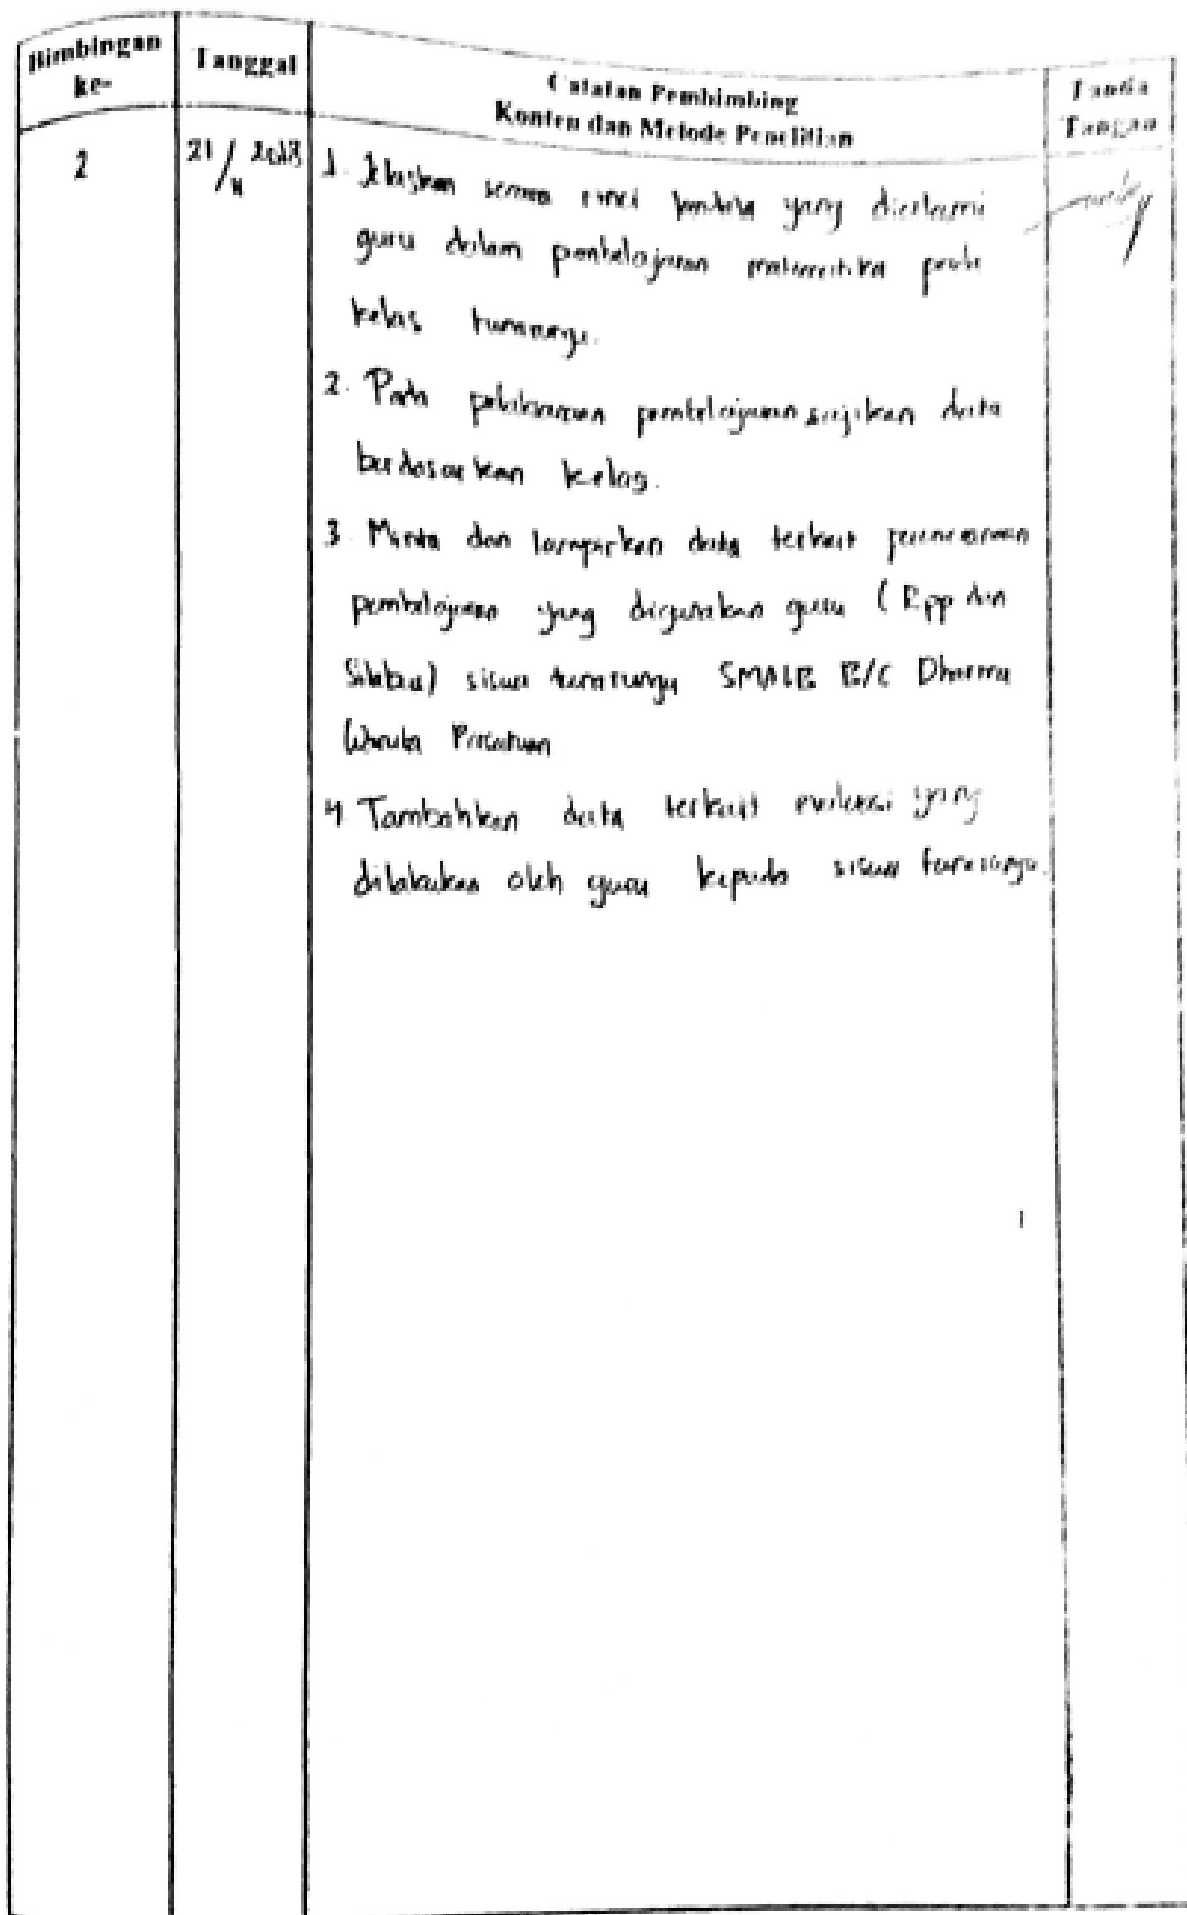 Bimbingan
ke-
Tanggal
Catatan Pembimbing
Konten dan Metode Penelitian
Tanda
Tangan
2
21/11 2023
1. Jelaskan secara rinci kendala yang dialami
guru dalam pembelajaran matematika pada
kelas tunarungu.
2. Pada pelaksanaan pembelajaran sajikan data
berdasarkan kelas.
3. Minta dan lampirkan data terkait perencanaan
pembelajaran yang digunakan guru (RPP dan
Silabus) siswa tunarungu SMALB B/C Dharma
Wanita
4 Tambahkan data terkait evaluasi yang
dilakukan oleh guru kepada siswa tunarungu.